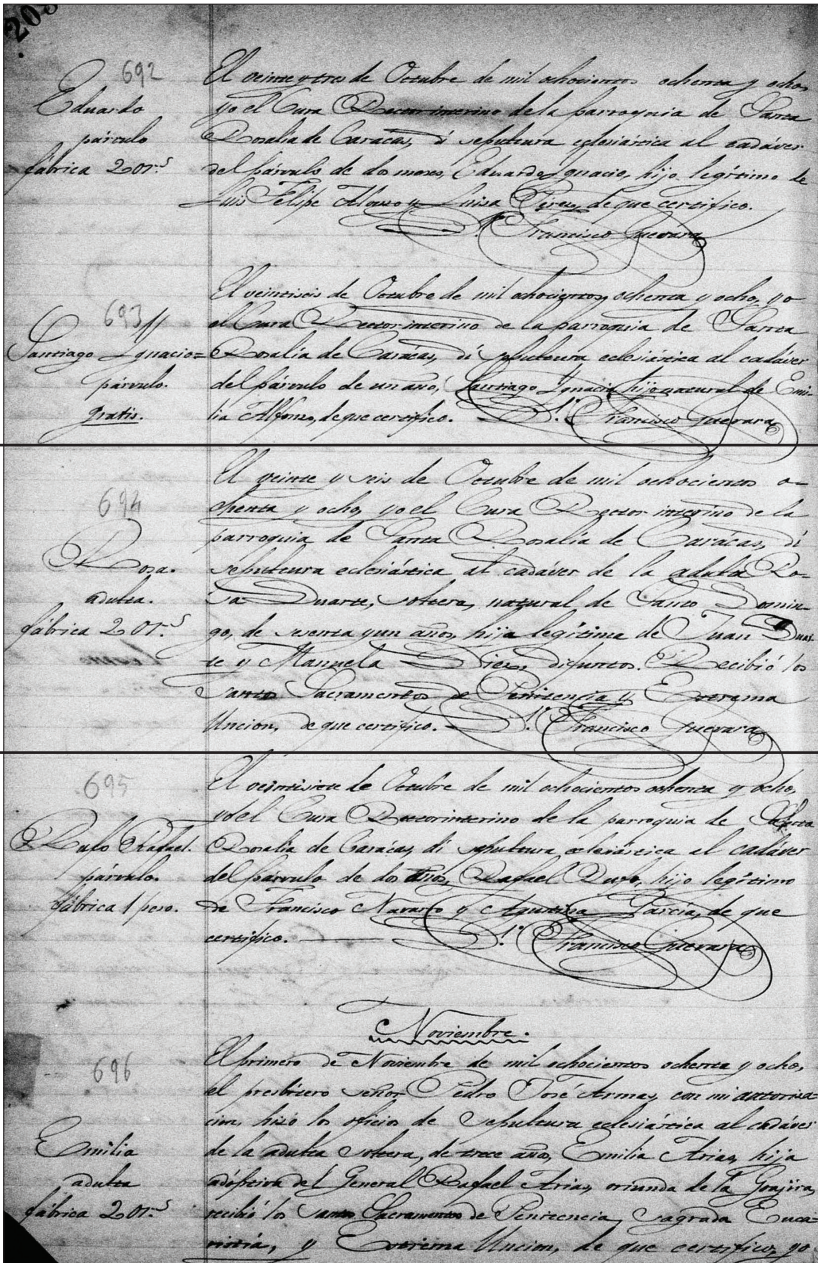 208
692
Eduardo
párvulo
fábrica 20 r.s
El veinte y tres de Octubre de mil ochocientos ochenta y ocho
yo el Cura Rector interino de la parroquia de Santa
Rosalia de Caracas, di sepultura eclesiástica al cadáver
del párvulo de dos meses, Eduardo Ignacio, hijo legítimo de
Luis Felipe Alonzo y Luisa Perez, de que certifico.
Francisco Guevara
693
Santiago Ignacio=
párvulo.
gratis.
El veintiseis de Octubre de mil ochocientos ochenta y ocho, yo
el Cura Rector interino de la parroquia de Santa
Rosalia de Carácas, di sepultura eclesiástica al cadáver
del párvulo de un año, Santiago Ignacio, hijo natural de Emi-
lia Alfonzo, de que certifico. Francisco Guevara
694
Rosa.
adulta.
fábrica 20 r.s
El veinte y seis de Octubre de mil ochocientos o-
chenta y ocho, yo el Cura Rector interino de la
parroquia de Santa Rosalia de Carácas, di
sepultura eclesiástica al cadáver de la adulta Ro-
sa Duarte, soltera, natural de Santo Domin-
go, de sesenta y un años, hija legítima de Juan Duar-
te y Manuela Diez, difuntos. Recibió los
Santos Sacramentos de Penitencia y Extrema
Uncion, de que certifico. Francisco Guevara
695
Rulo Rafael.
párvulo.
fábrica 1 peso.
El veintisiete de Octubre de mil ochocientos ochenta y ocho,
yo el Cura Rector interino de la parroquia de Santa
Rosalia de Carácas, di sepultura eclesiástica al cadáver
del párvulo de dos años, Rafael, hijo legítimo
de Francisco Navarro y Agustina García, de que
certifico. Francisco Guevara
Noviembre.
696
Emilia
adulta
fábrica 20 r.s
El primero de Noviembre de mil ochocientos ochenta y ocho,
el presbítero señor Pedro José Armas, con mi autoriza-
cion hizo los oficios de sepultura eclesiástica al cadáver
de la adulta soltera, de trece años, Emilia Arias, hija
adoptiva del General Rafael Arias, oriunda de la Goajira,
recibió los Santos Sacramentos de Penitencia, Sagrada Euca-
ristia, y Extrema Uncion, de que certifico, yo